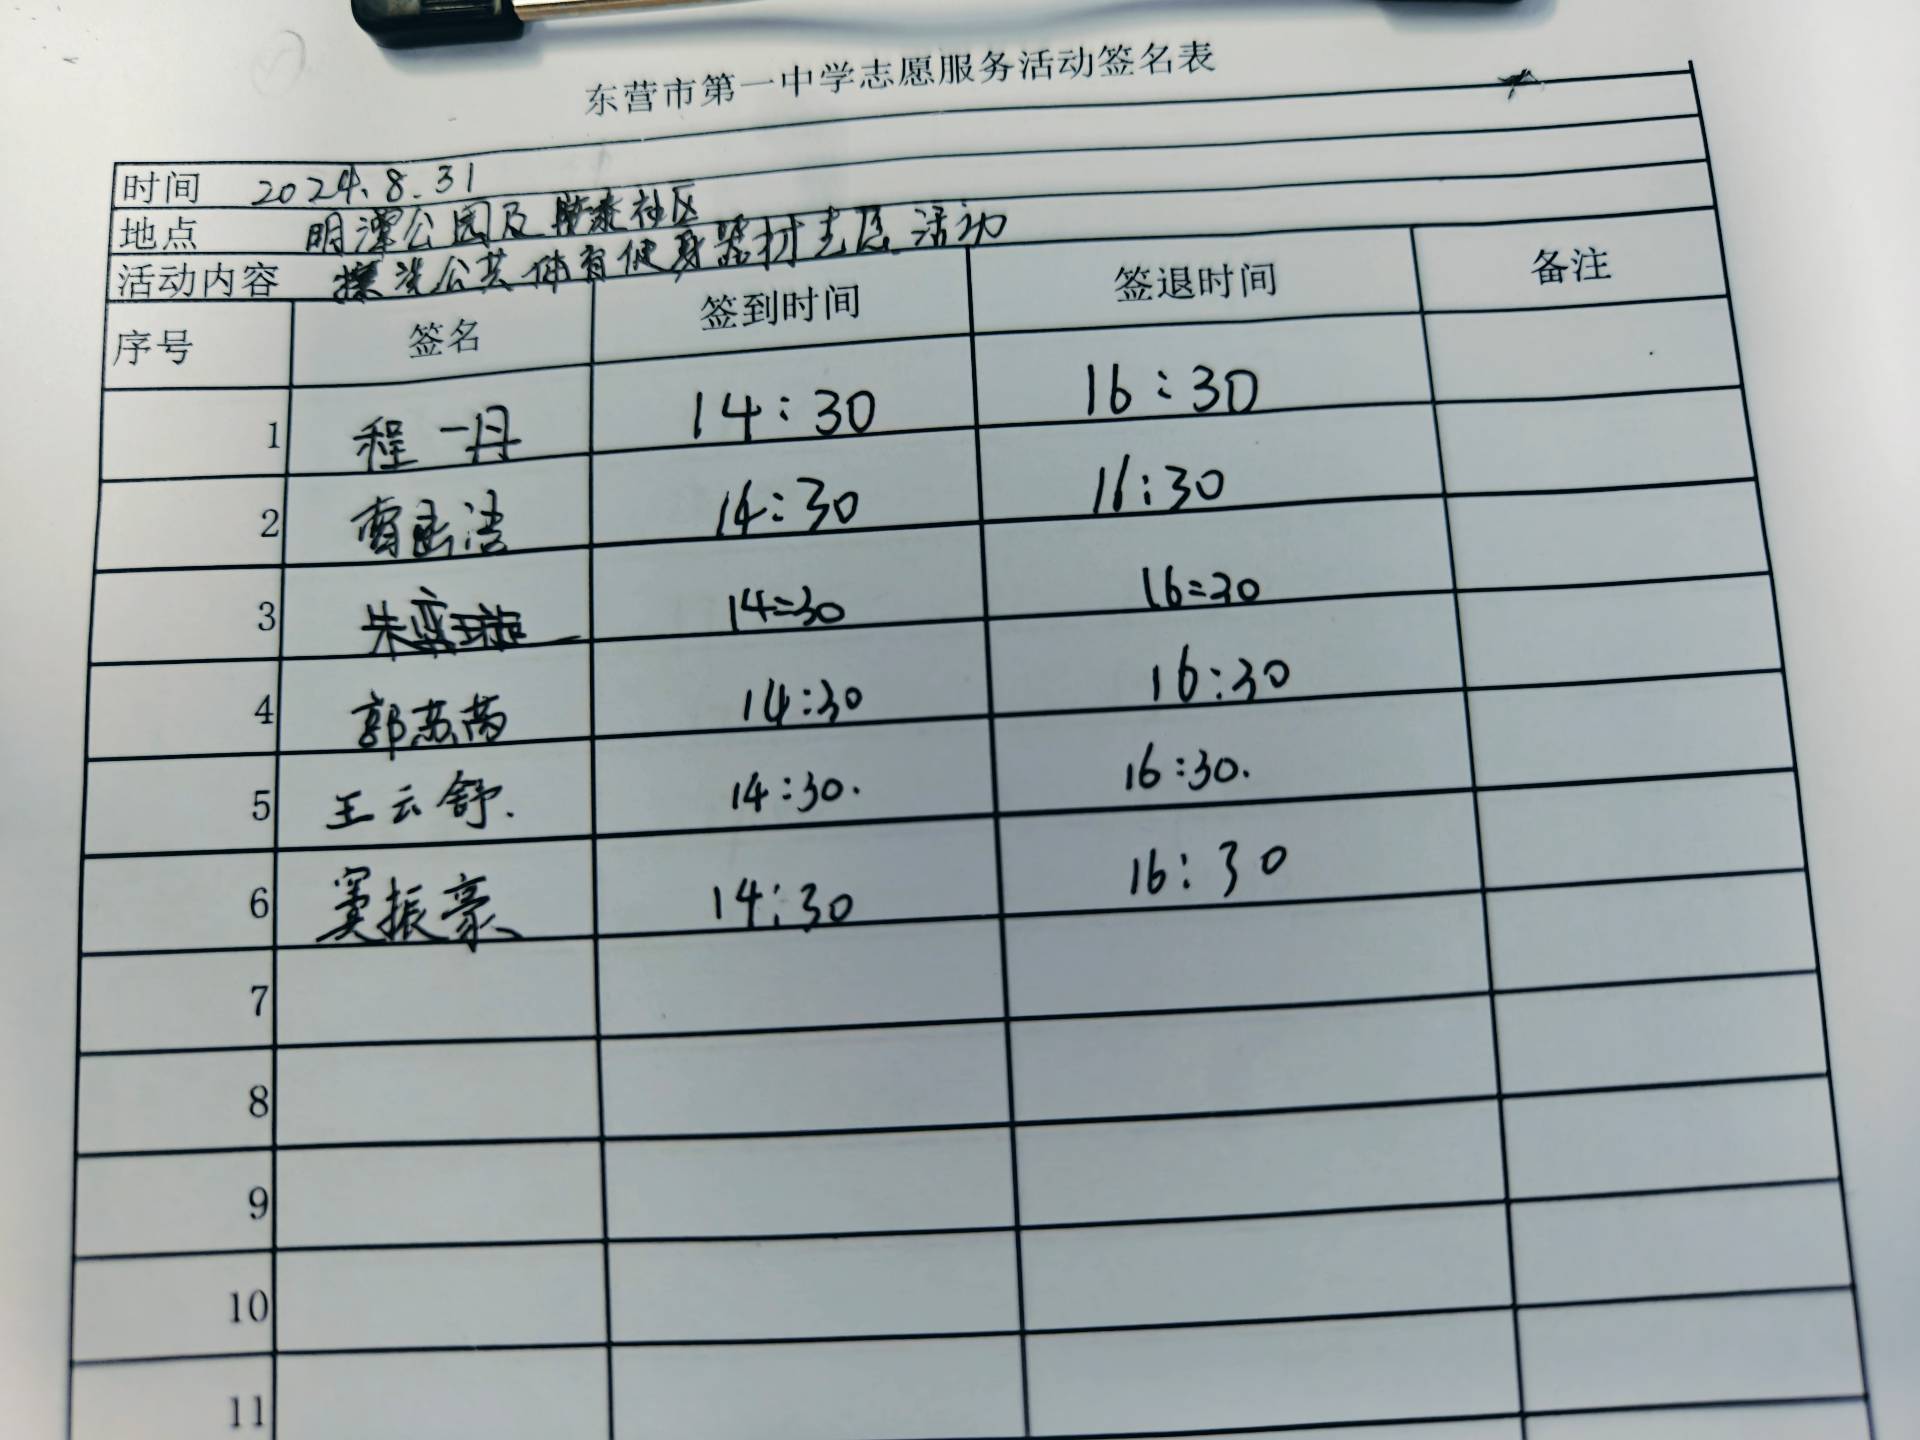 东营市第一中学志愿服务活动签名表
时间 2024.8.31
地点 明潭公园及胜泰社区
活动内容 擦洗公共体育健身器材志愿活动
序号 签名 签到时间 签退时间 备注
1 程一丹 14:30 16:30
2 浩 14:30 16:30
3 朱 14:30 16:30
4 郭苏芮 14:30 16:30
5 王云舒. 14:30. 16:30.
6 窦振豪 14:30 16:30
7
8
9
10
11